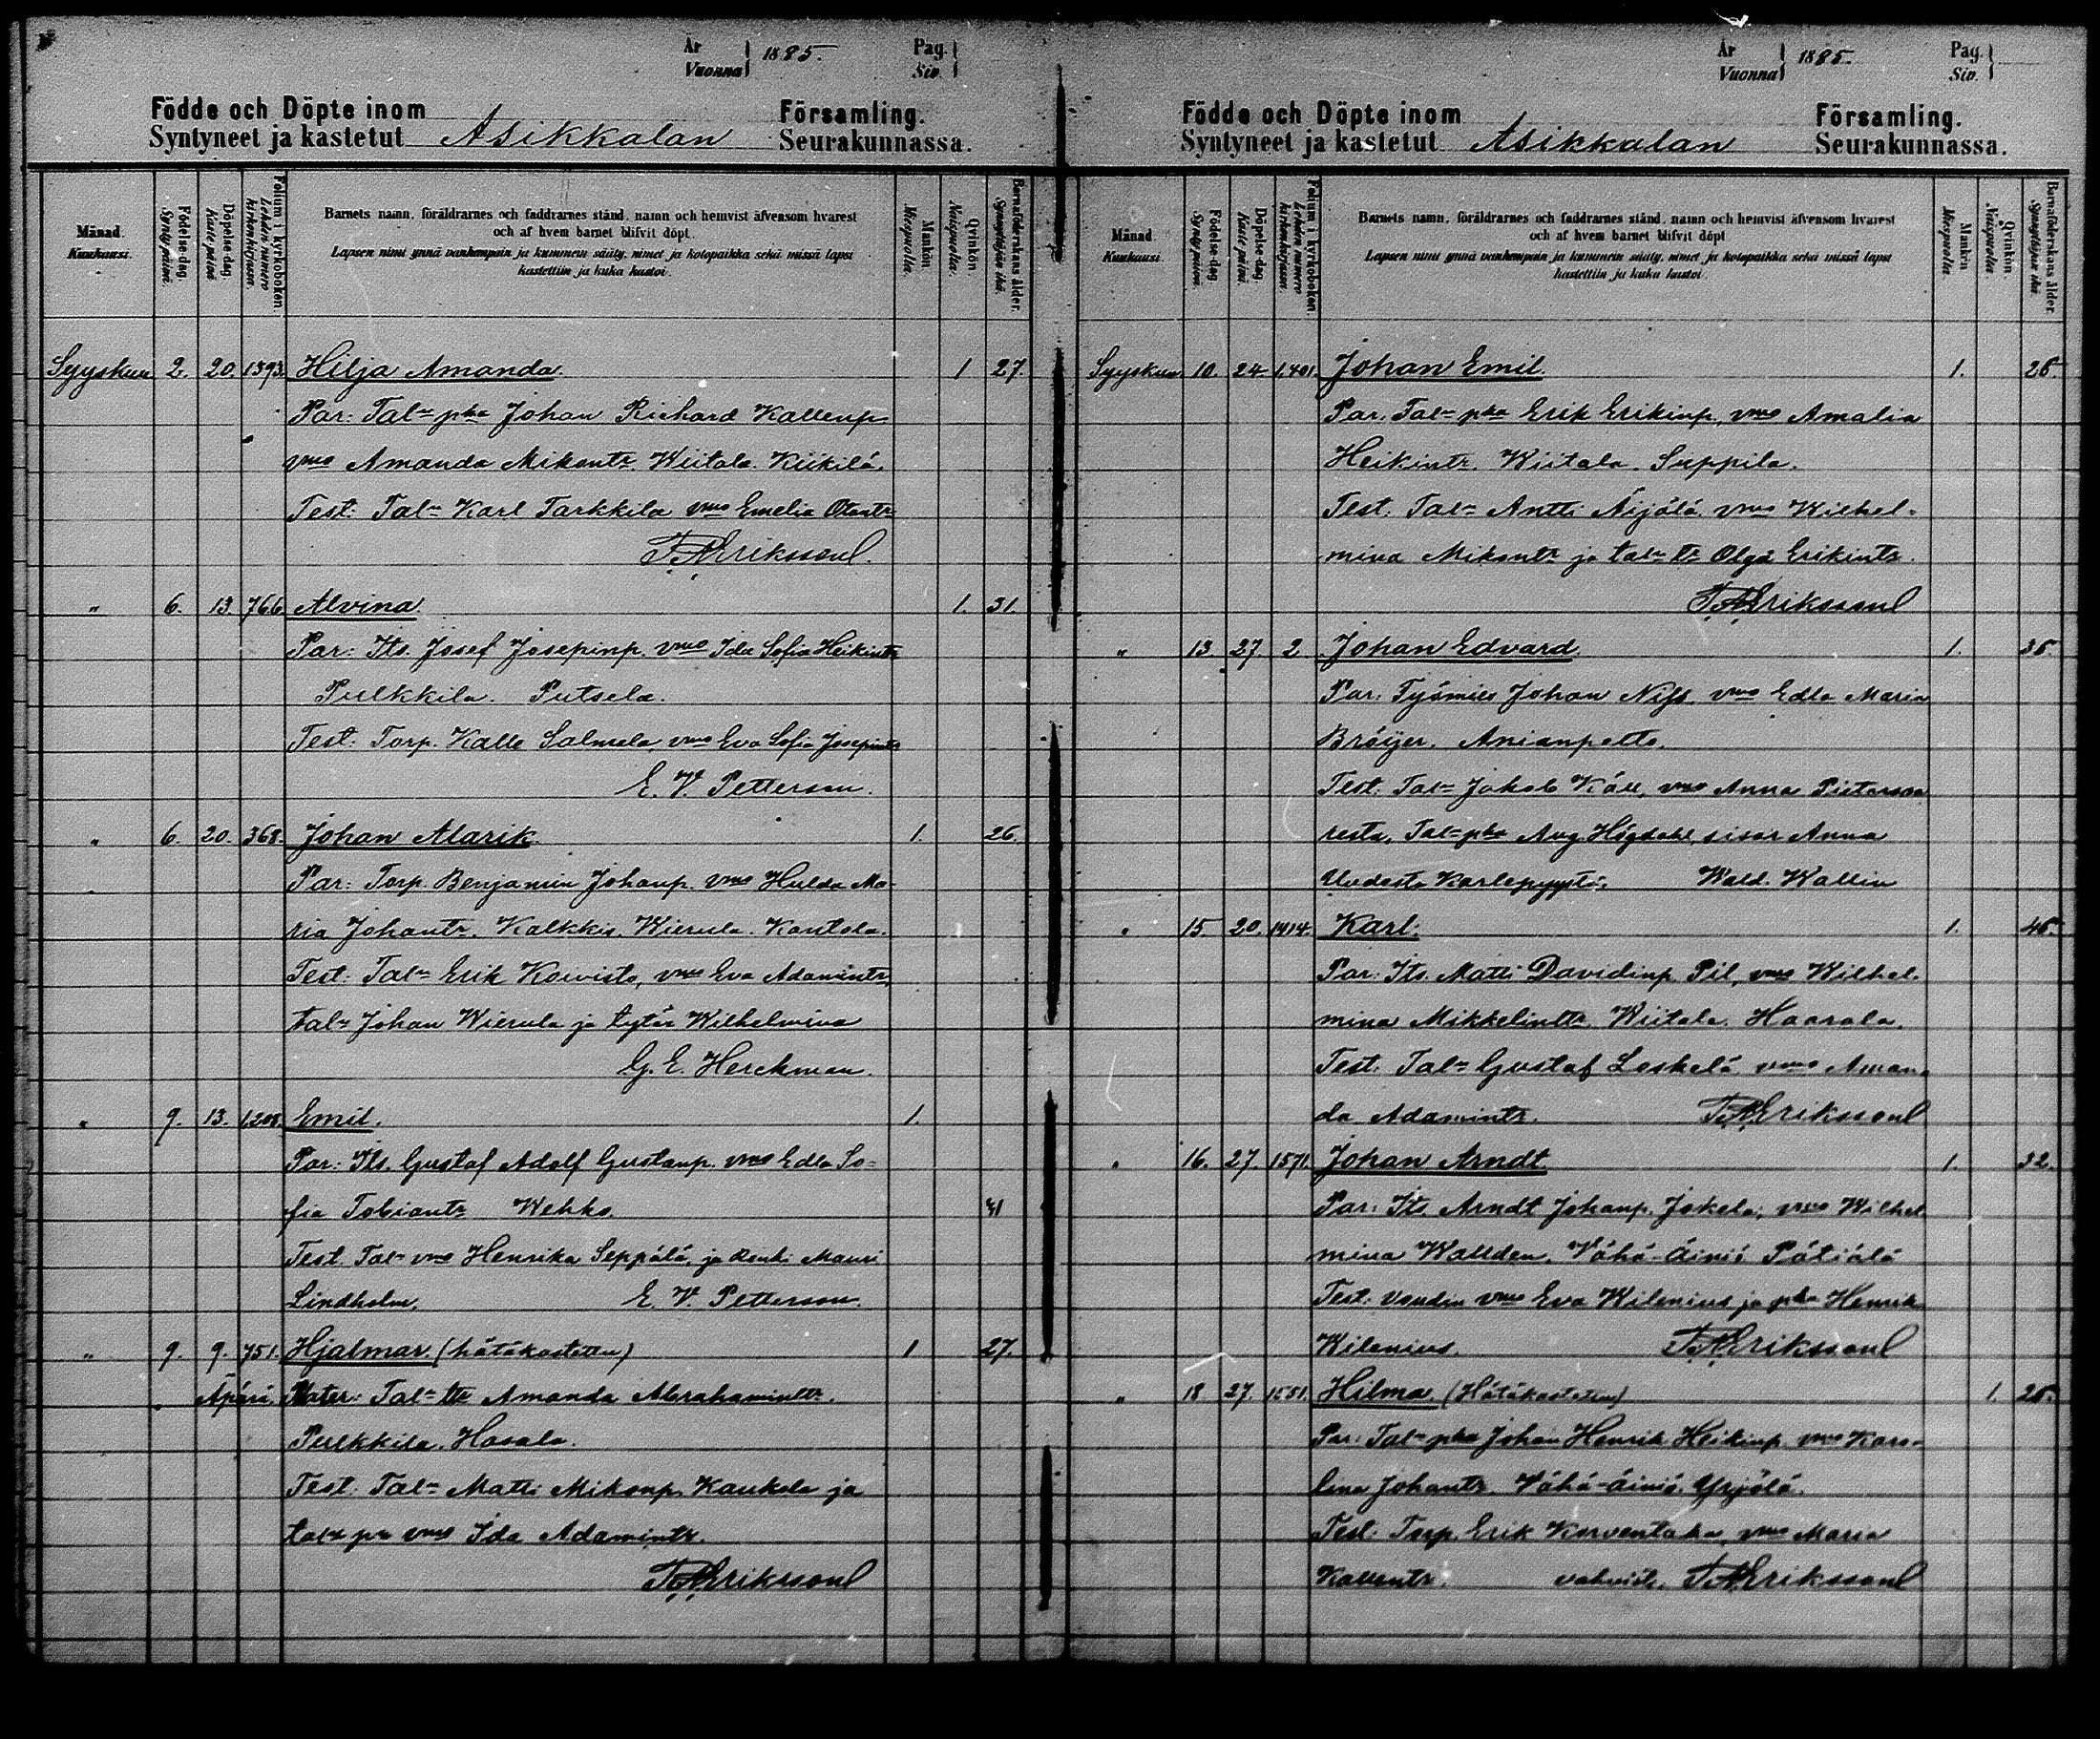 År
Vuonna 1885.
Pag.
Siv.
Födde och Döpte inom
Syntyneet ja kastetut Asikkalan
Församling.
Seurakunnassa.
Månad.
Kuukausi.
Födelse-dag.
Syntypäivä.
Döpelse-dag.
Kaste päivä
Folium i kyrkoboken.
Lehden numero kirkonkirjassa.
Barnets namn, föräldrarnes och faddrarnes stånd, namn och hemvist äfvensom hvarest
och af hvem barnet blifvit döpt.
Lapsen nimi ynnä vanhempain ja kummein sääty, nimet ja kotopaikka sekä missä lapsi
kastettiin ja kuka kastoi.
Mankön.
Miespuolia.
Qvinkön
Naispuolia.
Barnaföderskans ålder.
Synnyttäjän ikä.
Syyskuu 2. 20. 1393. Hilja Amanda. 1 27.
Par: Tal. pka Johan Richard Kallenp.
vmo Amanda Mikontr. Wiitala. Kiikilä.
Test: Tal. Karl Tarkkila vmo Emelia Otontr.
Erikssonl.
" 6. 13. 766. Alvina. 1. 31.
Par: Its. Josef Josepinp. vmo Ida Sofia Heikintr
Pulkkila. Putsela.
Test: Torp. Kalle Salmela vmo Eva Sofia Josepintr
E. V. Petterson.
" 6. 20. 368. Johan Alarik. 1. 26.
Par: Torp. Benjamin Johanp. vmo Hulda Ma-
ria Johantr. Kalkkis. Wierula. Kantola.
Test: Tal. Erik Koivisto, vmo Eva Adamintr,
tal. Johan Wierula ja tytär Wilhelmina
G. E. Herckman.
" 9. 13. 1.208. Emil. 1.
Par: Its. Gustaf Adolf Gustanp. vmo Edla So-
fia Tobiantr Wehko. 41
Test. Tal. vmo Henrika Seppälä, ja Renki Mauri
Lindholm. E. V. Petterson.
" 9. 9. 751. Hjalmar. (hätäkastettu) 1 27.
Äpärä. Mater: Tal. ttr Amanda Abrahamintr.
Pulkkila. Hasala.
Test: Tal. Matti Mikonp. Kaukela ja
tal. pr vmo Ida Adamintr.
Erikssonl
År
Vuonna 1885.
Pag.
Siv.
Födde och Döpte inom
Syntyneet ja kastetut Asikkalan
Församling.
Seurakunnassa.
Månad.
Kuukausi.
Födelse-dag.
Syntypäivä.
Döpelse-dag.
Kaste päivä
Folium i kyrkoboken.
Lehden numero kirkonkirjassa.
Barnets namn, föräldrarnes och faddrarnes stånd, namn och hemvist äfvensom hvarest
och af hvem barnet blifvit döpt
Lapsen nimi ynnä vanhempain ja kummein sääty, nimet ja kotopaikka sekä missä lapsi
kastettiin ja kuka kastoi.
Mankön
Miespuolia.
Qvinkön
Naispuolia.
Barnaföderskans ålder.
Synnyttäjän ikä.
Syyskuu 10. 24. 1.401. Johan Emil. 1.
Par: Tal. pka Erik Erikinp., vmo Amalia
Heikintr. Wiitala. Suppila.
Test: Tal. Antti Äijälä. vmo Wilhel-
mina Mikontr ja tal. tr Olga Erikintr.
Erikssonl
" 13. 27. 2 Johan Edvard. 1. 35.
Par: Työmies Johan Nyss. vmo Edla Maria
Bröijer. Anianpelto.
Test: Tal. Jakob Käll, vmo Anna Pieterson
resta, Tal. pka Aug. Högdahl, sisar Anna
Uudesta Karlepyystä. Wald. Wallin
" 15. 20. 1414. Karl. 1. 45.
Par: Its. Matti Davidinp. Pil, vmo Wilhel-
mina Mikkelintr. Wiitala. Haarala.
Test: Tal. Gustaf Leskelä vmo Aman-
da Adamintr. Erikssonl
" 16. 27. 1571. Johan Arndt. 1. 32.
Par: Its. Arndt Johanp. Jokela, vmo Wilhel
mina Wallden. Vähä-Äiniö Pätiälä
Test: Voudin vmo Eva Wilenius ja pka Henrik
Wilenius. Erikssonl
" 18. 27. 1551. Hilma. (Hätäkastettu) 1.
Par: Tal. pka Johan Henrik Heikinp. vmo Karo-
lina Johantr. Vähä-Äiniö. Yrjölä.
Test: Torp. Erik Korventaka, vmo Maria
Kallentr. vahvisti. Erikssonl